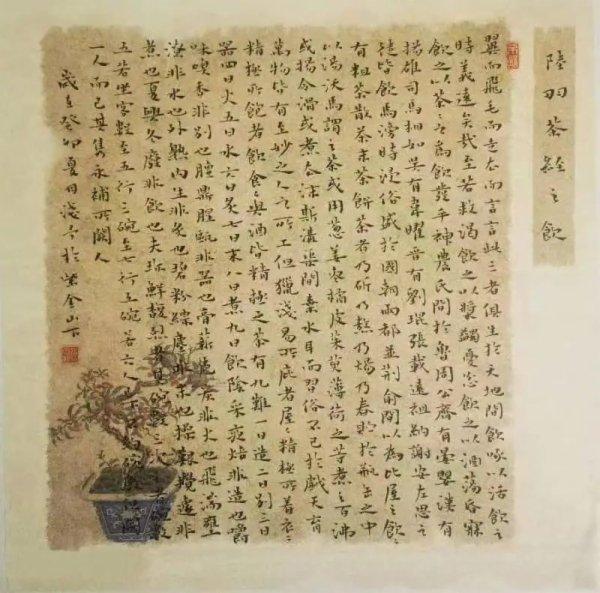 陸羽茶經之飲
翼而飛毛而走而言言此三者俱生於天地間飲啄以活飲之
時義遠矣哉至若救渴飲之以漿蠲憂忿飲之以酒蕩昏寐
飲之以茶々之為飲發乎神農氏聞於魯周公齊有晏嬰漢有
揚雄司馬相如吳有韋曜晉有劉琨張載遠祖納謝安左思之
徒皆飲焉滂時浸俗盛於國朝兩都並荊俞間以為比屋之飲々
有粗茶散茶末茶餅茶者乃斫乃熬乃煬乃舂貯於瓶缶之中
以湯沃焉謂之茶或用蔥姜棗橘皮茱萸薄荷之等煮之百沸
或揚令滑或煮去沫斯溝渠間棄水耳而習俗不已於戲天育
萬物皆有至妙之人之所工但獵淺易所庇者屋々精極所著衣々
精極所飽者飲食々與酒皆精極之茶有九難一曰造二曰別三曰
器四曰火五曰水六曰炙七曰末八曰煮九曰飲陰采夜焙非造也嚼
味嗅香非別也膻鼎腥甌非器也膏薪庖炭非火也飛湍壅
潦非水也外熟內生非炙也碧粉縹塵非末也操艱攪遽非
煮也夏興冬廢非飲也夫珍鮮馥烈者其碗數三次之者碗數
五若坐客數至五行三碗至七行五碗若六人以下不約碗數但闕
一人而已其雋永補所闕人
歲在癸卯夏月於紫金山下